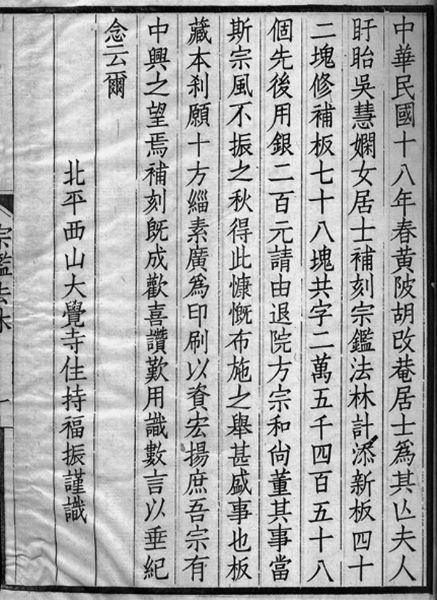 中華民國十八年春黃陂胡改菴居士爲其亡夫人
盱眙吳慧嫻女居士補刻宗鑑法林計添新板四十
二塊修補板七十八塊共字二萬五千四百五十八
個先後用銀二百元請由退院方宗和尙董其事當
斯宗風不振之秋得此慷慨布施之舉甚盛事也板
藏本刹願十方緇素廣爲印刷以資宏揚庶吾宗有
中興之望焉補刻旣成歡喜讚歎用識數言以垂紀
念云爾
北平西山大覺寺住持福振謹識
宗鑑法林